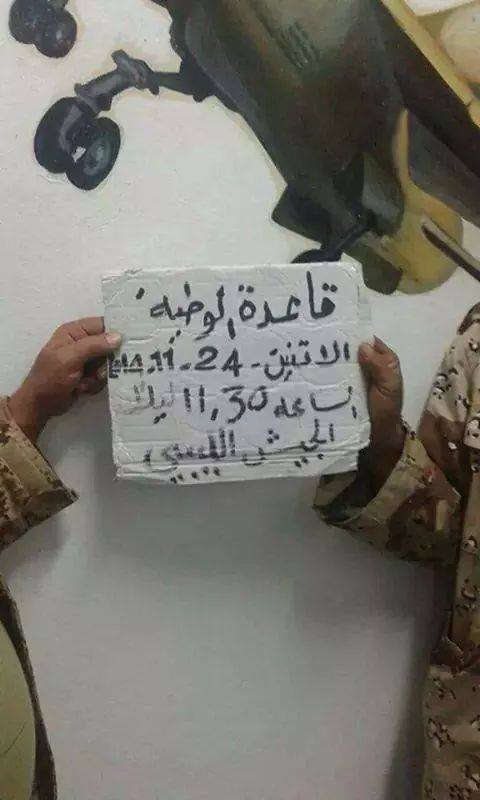 قاعدة الوطيه
الاتنين - 24 - 11 - 2014
الساعه 11,30 ليلا
الجيش الليبي